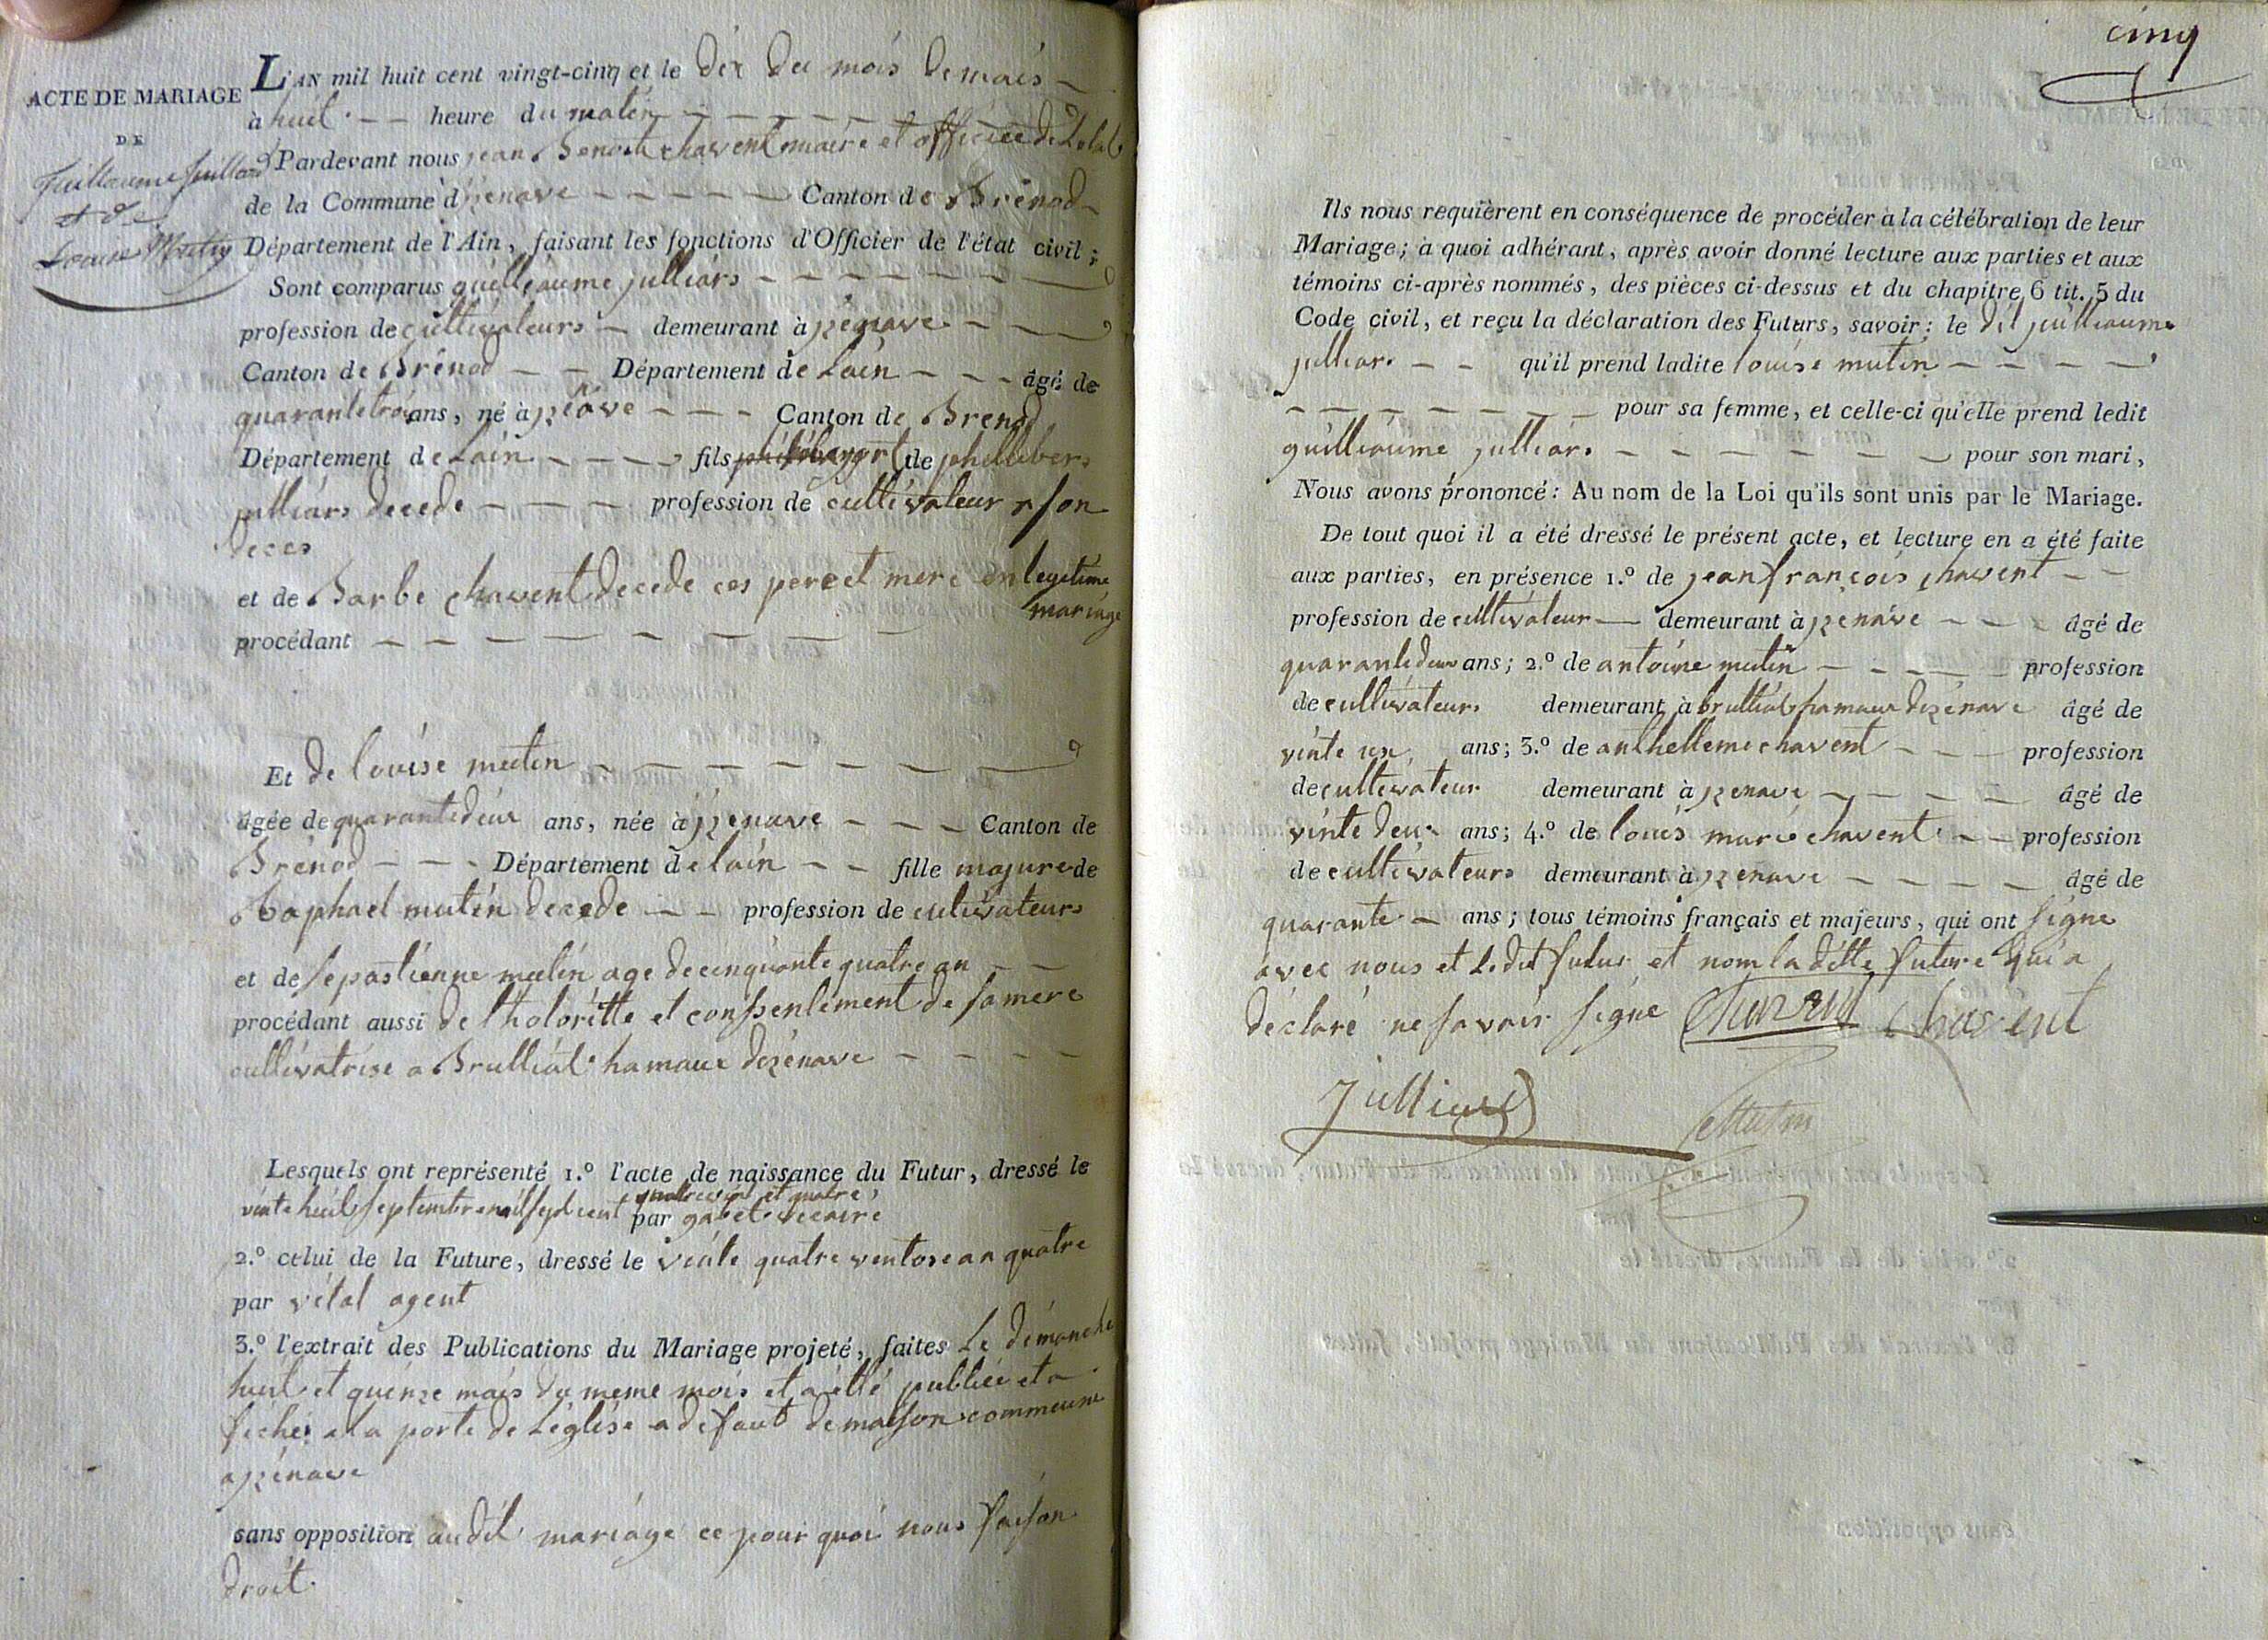 ACTE DE MARIAGE
DE
Guillaume Juillard
et de
Louise Mutin
L'AN mil huit cent vingt-cinq et le dix du mois de mais
à huit heure du matin
Pardevant nous jean Benoit chavent maire et officiee de Letat
de la Commune d'izenave Canton de Brénod
Département de l'Ain, faisant les fonctions d'Officier de l'état civil;
Sont comparus guilliaume julliard
profession de cultivateurs demeurant à izenave
Canton de Brénod Département de Lain âgé de
quarante trois ans, né à Canton de Brenod
Département de Lain fils de phillibers
julliard decede profession de cultivateur a son
deces
et de Barbe chavent decede ces pere et mere en legitime
mariage
procédant
Et de louise mutin
âgée de quarante deux ans, née à izenave Canton de
Brénod Département de lain fille majure de
Raphael mutin decede profession de cultivateurs
et de sepastienne mutin age de cinquante quatre an
procédant aussi de lhotoritte et conssentement de sa mere
cultivatrise a Brulliat hamaux dizenave
Lesquels ont représenté 1.º l'acte de naissance du Futur, dressé le
quatrevint et quatre
vinte huit septembre mil sept cent par vicaire
2.º celui de la Future, dressé le vinte quatre ventose an quatre
par vital agent
3.º l'extrait des Publications du Mariage projeté, faites Le dimanche
huit et quinze mais du meme mois et a etté publiée et a
fiché a la porte de Léglise a defaut de maison commeune
a izenave
sans opposition audit mariage ce pour quoi nous faison
droit
cinq
Ils nous requièrent en conséquence de procéder à la célébration de leur
Mariage; à quoi adhérant, après avoir donné lecture aux parties et aux
témoins ci-après nommés, des pièces ci-dessus et du chapitre 6 tit. 5 du
Code civil, et reçu la déclaration des Futurs, savoir: le dit guilliaume
julliar qu'il prend ladite louise mutin
pour sa femme, et celle-ci qu'elle prend ledit
guilliaume julliar pour son mari,
Nous avons prononcé: Au nom de la Loi qu'ils sont unis par le Mariage.
De tout quoi il a été dressé le présent acte, et lecture en a été faite
aux parties, en présence 1.º de jean françois chavent
profession de cultivateur demeurant à izenave âgé de
quarante deux ans; 2.º de antoine mutin profession
de cultivateur demeurant à brulliat hamaux dizenave âgé de
vinte un ans; 3.º de anthelleme chavent profession
de cultivateur demeurant à izenave âgé de
vinte deux ans; 4.º de louis marie chavent profession
de cultivateurs demeurant à izenave âgé de
quarante ans; tous témoins français et majeurs, qui ont signe
avec nous et Le dit futur et nom la ditte future qui a
déclaré ne savoir signe Chavent Chavent
Julliard Mutin